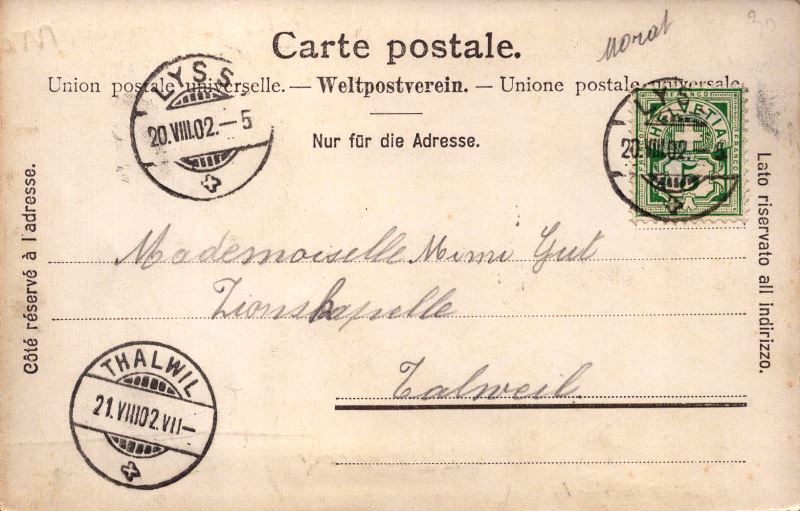 Morat
30
Carte postale.
Union postale universelle. — Weltpostverein. — Unione postale universale
Nur für die Adresse.
LYSS
20.VIII.02.–5
LYSS
20.VIII.02.
FRANCO
HELVETIA
FRANCO
5
Côté réservé à l'adresse.
Lato riservato all indirizzo.
Mademoiselle Mimi Gut
Zionskapelle
Talweil.
THALWIL
21.VIII.02.VII–